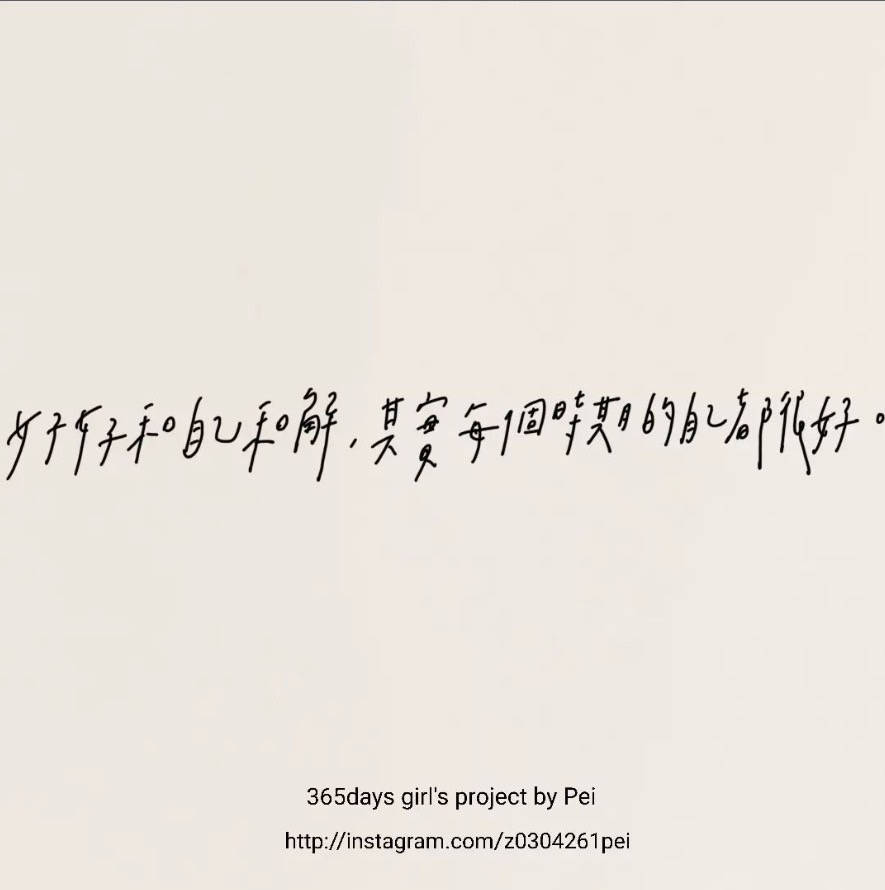 好好和自己和解，其實每個時期的自己都很好。
365days girl's project by Pei
http://instagram.com/z0304261pei